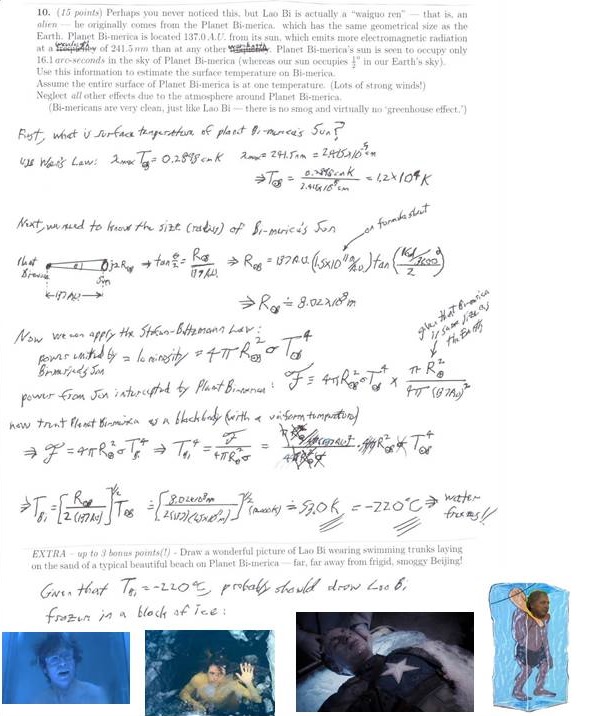 10. (15 points) Perhaps you never noticed this, but Lao Bi is actually a "waiguo ren" — that is, an
alien — he originally comes from the Planet Bi-merica. which has the same geometrical size as the
Earth. Planet Bi-merica is located 137.0 A.U. from its sun, which emits more electromagnetic radiation
at a wavelength of 241.5 nm than at any other. Planet Bi-merica's sun is seen to occupy only
16.1 arc-seconds in the sky of Planet Bi-merica (whereas our sun occupies ½° in our Earth's sky).
Use this information to estimate the surface temperature on Bi-merica.
Assume the entire surface of Planet Bi-merica is at one temperature. (Lots of strong winds!)
Neglect all other effects due to the atmosphere around Planet Bi-merica.
(Bi-mericans are very clean, just like Lao Bi — there is no smog and virtually no 'greenhouse effect.')
First, what is surface temperature of planet Bi-merica's Sun?
Wein's Law: λmax T = 0.2898 cm K λmax = 241.5nm = 2.415×10⁻⁵ cm
⇒ T = 0.2898 cm K / = 1.2×10⁴ K
Next, we need to know the size (radius) of Bi-merica's Sun
on formula sheet
Planet
Bi-merica
Sun
←137 AU→
⇒ tan θ/2 = R / 137 A.U. ⇒ R = 137 A.U. (1.5×10¹¹ m/A.U.) tan ( / 2)
⇒ R ≐ 8.02×10⁸ m
given that Bi-merica
is same size as
the Earth
Now we can apply the Stefan-Boltzmann Law:
power emitted by = luminosity = 4π R² σ T⁴
Bi-merica's Sun
power from Sun intercepted by Planet Bi-merica: F = 4π R² σ T⁴ × π R² / 4π (137 AU)²
now treat Planet Bi-merica as a blackbody (with a uniform temperature)
⇒ F = 4π R² σ T⁴ ⇒ T⁴ = F / 4π R² σ =
⇒ T = [R / 2 (137 AU)]^½ T ≐ [8.02×10⁸ m / 2(137)(1.5×10¹¹ m)]^½ (12000K) ≐ 53.0 K = -220°C ⇒ water
freezes!!
EXTRA – up to 3 bonus points(!) - Draw a wonderful picture of Lao Bi wearing swimming trunks laying
on the sand of a typical beautiful beach on Planet Bi-merica — far, far away from frigid, smoggy Beijing!
Given that T = -220°C, probably should draw Lao Bi
frozen in a block of ice: